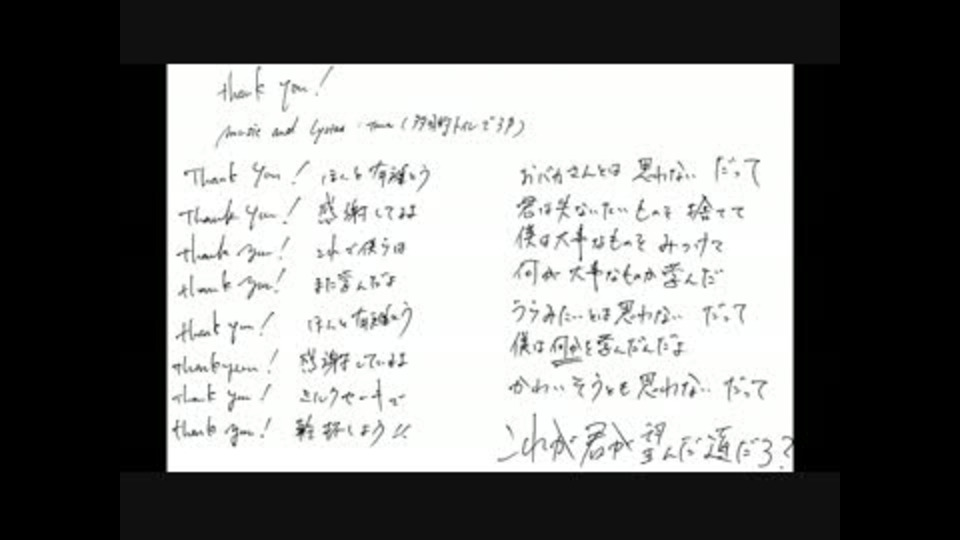 thank you!
music and lyrics : (多目的トイレで3P)
Thank You! ほんと有難とう
Thank You! 感謝してるよ
thank you! これで僕ら
thank you! また学んだよ
thank you! ほんと有難とう
thank you! 感謝しているよ
thank you! ミルクセーキで
thank you! 乾杯しよう!!
おバカさんとは 思わない だって
君は失ないたいものを 捨てて
僕は大事なものを みつけて
何が 大事なものか 学んだ
うらみたいとは思わない だって
僕は何かを学んだんだよ
かわいそうとも 思わない だって
これが君が望んだ道だろ?